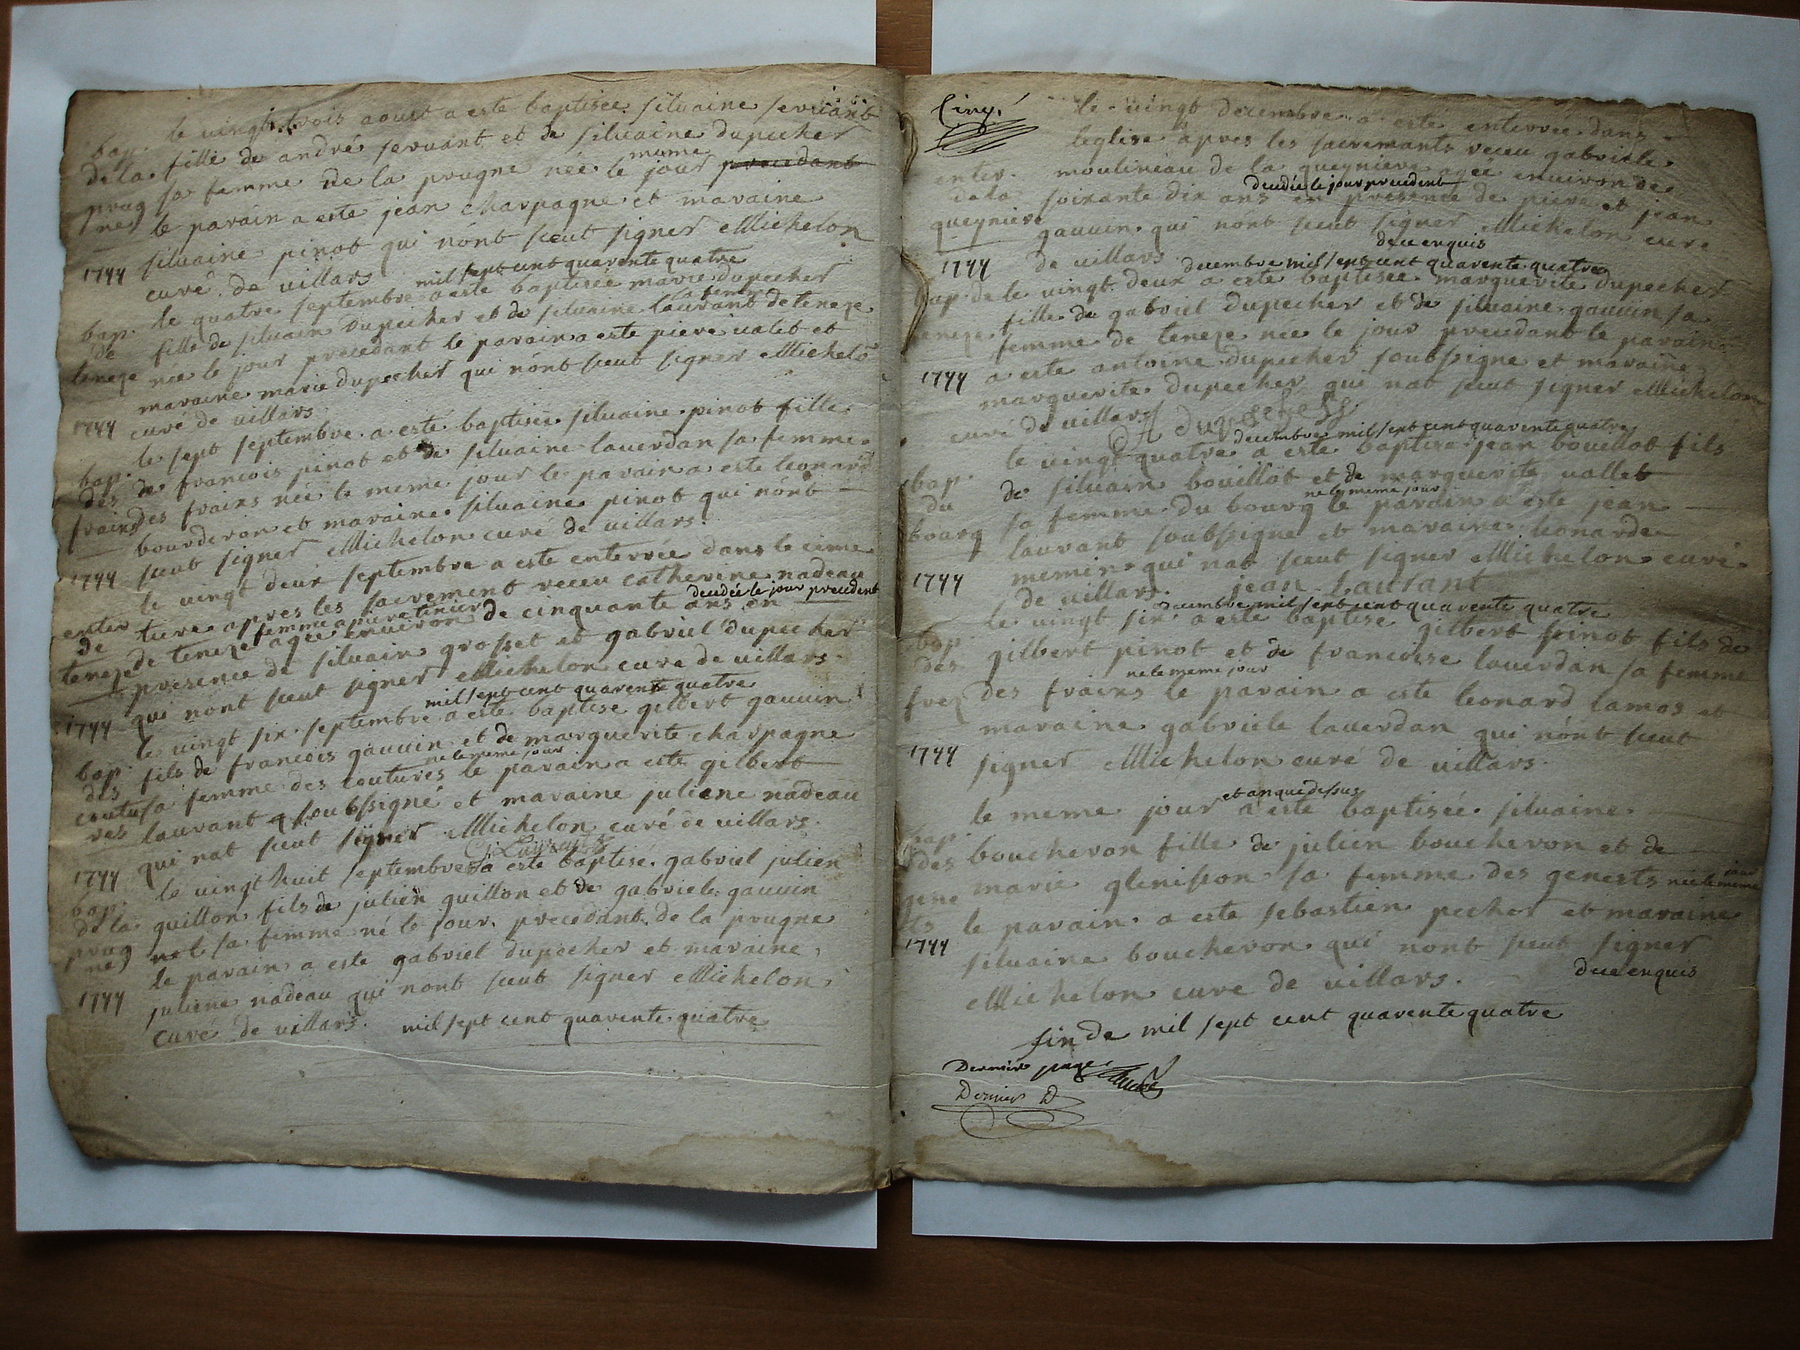 le vingt trois aoust a este baptisee siluaine seruant
bap. fille de andré seruant et de siluaine dupecher
de la sa femme de la prugne née le meme jour precedant
prug le parain a este jean charpagne et maraine
ne siluaine pinot qui nónt sceut signer Michelon
1744 curé de villars mil sept cent quarente quatre
le quatre septembre a este baptisée marie dupecher
bap. fille de siluain dupecher et de siluaine laurant sa femme de teneze
de née le jour precedant le parain a este piere valet et
teneze maraine marie dupecher qui nónt sceut signer Michelō
1744 curé de villars
le sept septembre a este baptisée siluaine pinot fille
bap. de francois pinot et de siluaine lauerdan sa femme
des des frains née le meme jour le parain a este leonard
frains bourderon et maraine siluaine pinot qui nónt
1744 sceut signer Michelon curé de villars.
le vingt deux septembre a este enterrée dans le cime
enter tiere apres les sacrement receu catherine nadeau
de femme a piere tenier decedée le jour precedent
teneze de teneze agée environ de cinquante ans en
presence de siluain grosset et gabriel dupecher
qui nont sceut signer Michelon cure de villars.
1744 mil sept cent quarente quatre
le vingt six septembre a este baptise gilbert gauuin
bap. fils de francois gauuin et de marguerite charpagne
des sa femme des coutures ne le meme jour le parain a este gilbert
coutu laurant soubssigné et maraine juliene nadeau
res qui nat sceut signer Michelon curé de villars.
G. Laurant
1744 le vingt huit septembre a este baptise gabriel julien
bap. quillon fils de julien quillon et de gabriele gauuin
de la sa femme né le jour precedant de la prugne
prug le parain a este gabriel dupecher et maraine
ne
1744 juliene nadeau qui nont sceut signer Michelon
curé de villars. mil sept cent quarente quatre
Cinq.
le vingt decembre a este enterrée dans
leglise apres les sacremants receu gabriele
enter. moulineau de la queyniere agée environ de
de la decedée le jour precedent
queyniere soixante dix ans en presence de piere et jean
gauuin qui nónt sceut signer Michelon cure
1744 de villars dece enquis
decembre mil sept cent quarente quatre
bap. de le vingt deux a este baptisée marguerite dupecher
teneze fille de gabriel dupecher et de siluaine gauuin sa
femme de teneze née le jour precedant le parain
1744 a este antoine dupecher soubssigne et maraine
marguerite dupecher qui nat sceut signer Michelon
curé de villars A dupecher
decembre mil sept cent quarente quatre
le vingt quatre a este baptise jean bouillot fils
bap. de siluain bouillot et de marguerite vallet
du ne le meme jour
bourg sa femme du bourg le parain a este jean
laurant soubssigne et maraine leonarde
1744 memin qui nat sceut signer Michelon curé
de villars. jean Laurant
decembre mil sept cent quarente quatre
le vingt six a este baptise gilbert pinot fils de
bap gilbert pinot et de francoise lauerdan sa femme
des ne le meme jour
frez des frains le parain a este leonard lamos et
maraine gabriele lauerdan qui nónt sceut
1744 signer Michelon curé de villars.
et an que dessus
le meme jour a este baptisée siluaine
bap. boucheron fille de julien boucheron et de
des marie glenisson sa femme des genests née le meme jour
gene le parain a este sebastien pecher et maraine
sts
1744 siluaine boucheron qui nont sceut signer
Michelon cure de villars. dece enquis
fin de mil sept cent quarente quatre
Dernier page
Dernier